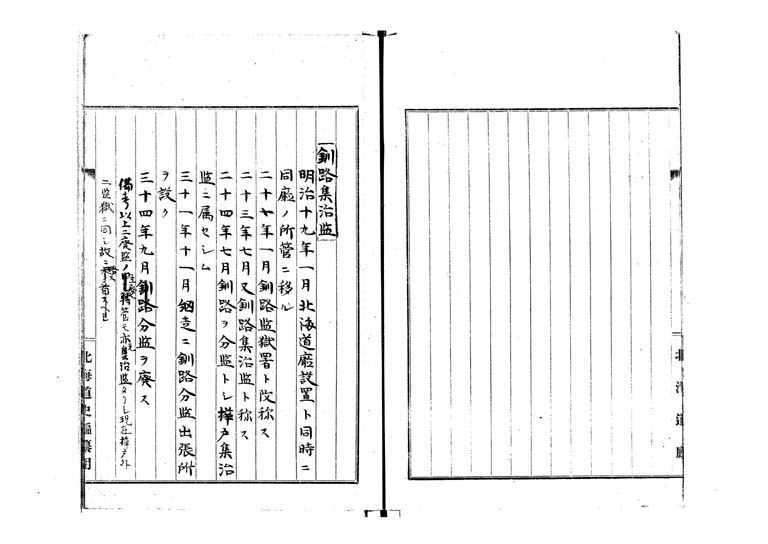 北海道廳
釧路集治監
明治十九年一月北海道廳設置ト同時ニ
同廳ノ所管ニ移ル
二十七年一月釧路監獄署ト改称ス
二十三年七月又釧路集治監ト称ス
二十四年七月釧路ヲ分監トシ樺戸集治
監ニ属セシム
三十一年十一月網走ニ釧路分監出張所
ヲ設ク
三十四年九月釧路分監ヲ廃ス
備考以上二廃監ノ
集治監タリシ現在樺戸外
二監獄ニ同シ故ニ
北海道史編纂